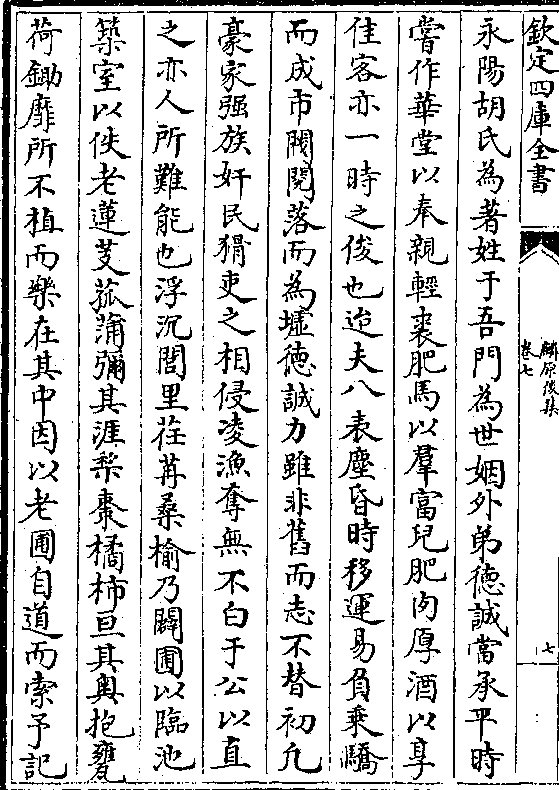 欽定四庫全書
麟原後集
卷七
七
永陽胡氏為著姓于吾門為世姻外弟德誠當承平時
嘗作華堂以奉親輕裘肥馬以羣富兒肥肉厚酒以享
佳客亦一時之俊也迨夫八表塵昏時移運易負乘驕
而成市閥閱落而為墟德誠力雖非舊而志不替初凢
豪家强族奸民猾吏之相侵凌漁奪無不白于公以直
之亦人所難能也浮沉閭里荏苒桑榆乃闢圃以臨池
築室以佚老蓮芰菰蒲彌其涯梨棗橘柿亘其奥抱甕
荷鋤靡所不植而樂在其中因以老圃自道而索予記